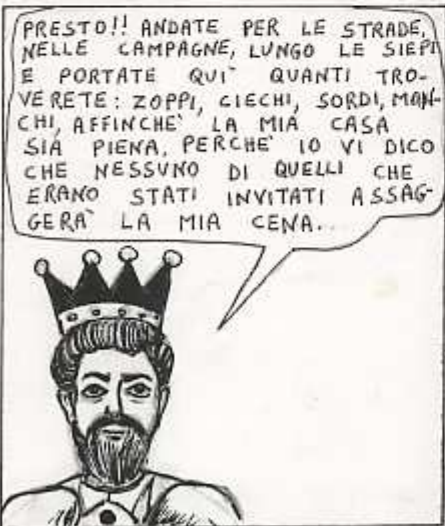 PRESTO!! ANDATE PER LE STRADE,
NELLE CAMPAGNE, LUNGO LE SIEPI
E PORTATE QUI` QUANTI TRO-
VERETE: ZOPPI, CIECHI, SORDI, MON-
CHI, AFFINCHE` LA MIA CASA
SIA PIENA, PERCHE` IO VI DICO
CHE NESSUNO DI QUELLI CHE
ERANO STATI INVITATI ASSAG-
GERA` LA MIA CENA...